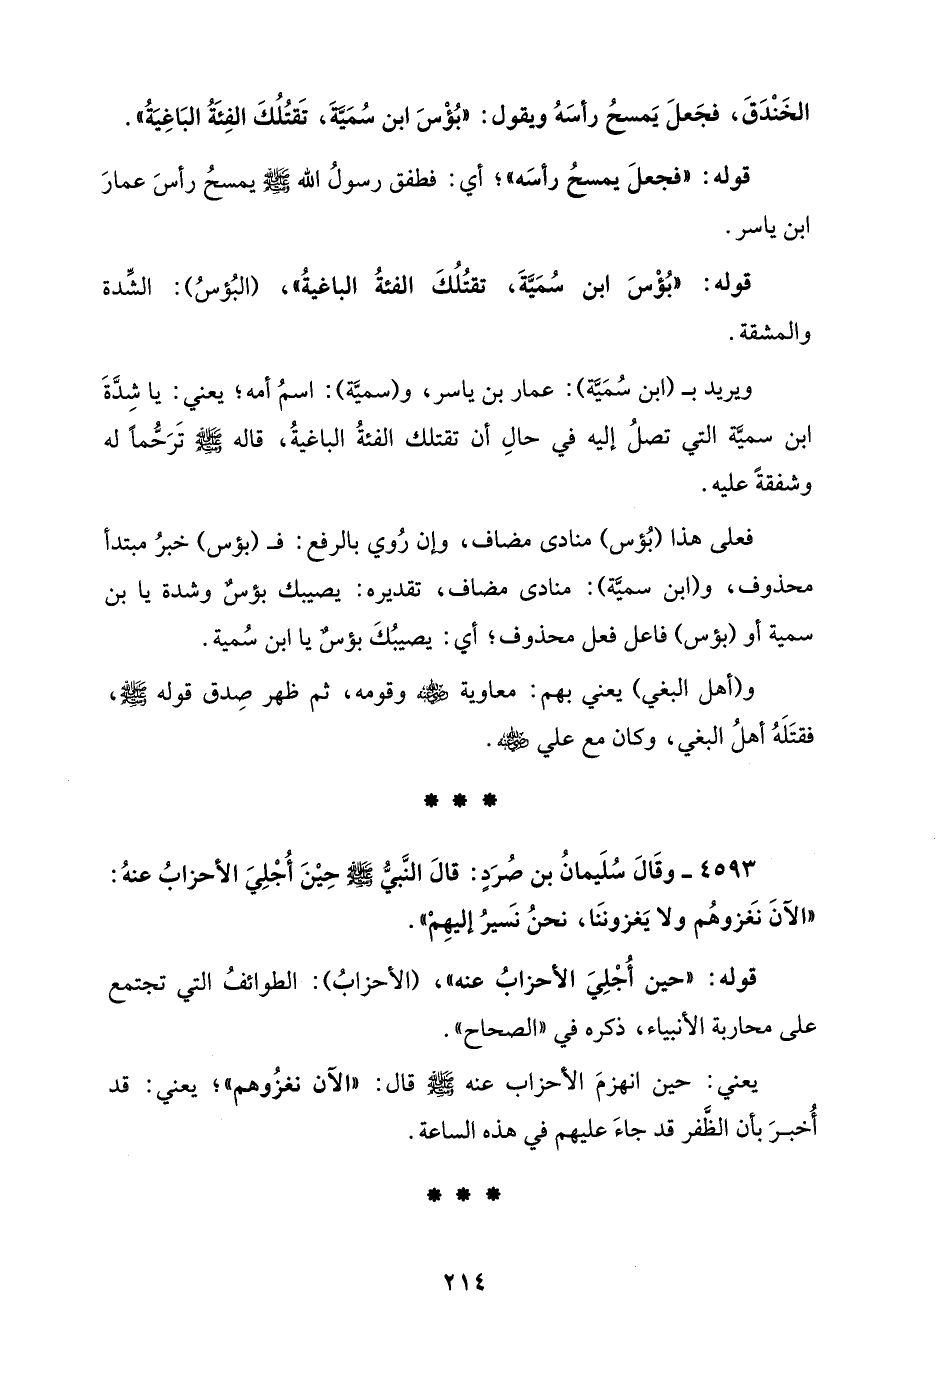 الخَنْدَقَ، فجَعلَ يَمسحُ رأسَهُ ويقول: «بُؤْسَ ابن سُمَيَّةَ، تَقتُلُكَ الفِئَةُ البَاغِيَةُ».
قوله: «فجعلَ يمسحُ رأسَه»؛ أي: فطفق رسولُ الله ﷺ يمسحُ رأسَ عمارَ
ابن ياسر.
قوله: «بُؤْسَ ابن سُمَيَّةَ، تقتُلُكَ الفئةُ الباغيةُ»، (البُؤسُ): الشِّدة
والمشقة.
ويريد بـ (ابن سُمَيَّة): عمار بن ياسر، و(سميَّة): اسمُ أمه؛ يعني: يا شِدَّةَ
ابن سميَّة التي تصلُ إليه في حالِ أن تقتلك الفئةُ الباغيةُ، قاله ﷺ تَرَحُّماً له
وشفقةً عليه.
فعلى هذا (بُؤس) منادى مضاف، وإن رُوي بالرفع: فـ (بؤس) خبرُ مبتدأ
محذوف، و(ابن سميَّة): منادى مضاف، تقديره: يصيبك بؤسٌ وشدة يا بن
سمية أو (بؤس) فاعل فعل محذوف؛ أي: يصيبُكَ بؤسٌ يا ابن سُمية.
و(أهل البغي) يعني بهم: معاوية ﵁ وقومه، ثم ظهر صِدق قوله ﷺ،
فقتَلَهُ أهلُ البغي، وكان مع علي ﵁.
* * *
٤٥٩٣ ـ وقَالَ سُلَيمانُ بن صُرَدٍ: قالَ النَّبيُّ ﷺ حِيْنَ أُجْلِيَ الأحزابُ عنهُ:
«الآنَ نَغزوهُم ولا يَغزوننَا، نحنُ نَسيرُ إليهِمْ».
قوله: «حين أُجْلِيَ الأحزابُ عنه»، (الأحزابُ): الطوائفُ التي تجتمع
على محاربة الأنبياء، ذكره في «الصحاح».
يعني: حين انهزمَ الأحزاب عنه ﷺ قال: «الآن نغزُوهم»؛ يعني: قد
أُخبـرَ بأن الظَّفر قد جاءَ عليهم في هذه الساعة.
* * *
٢١٤